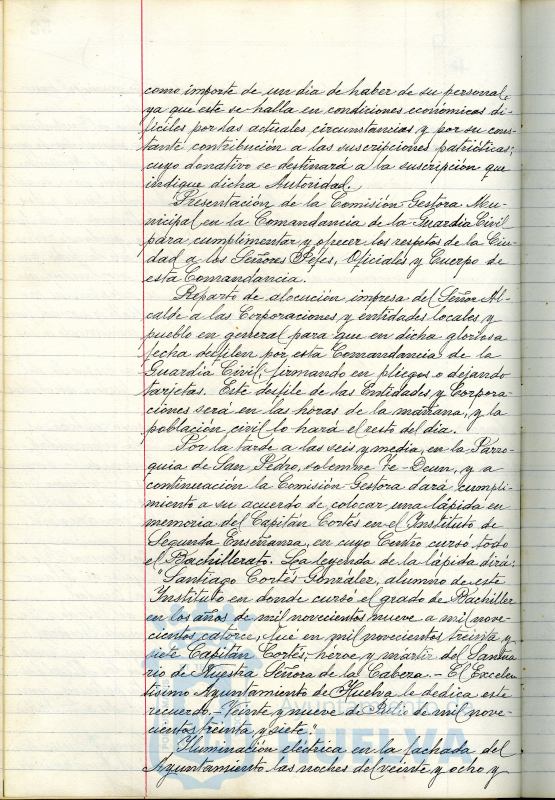 como importe de un dia de haber de su personal,
ya que este se halla en condiciones económicas di-
fíciles por las actuales circunstancias y por su cons-
tante contribución a las suscripciones patrióticas;
cuyo donativo se destinará a la suscripción que
indique dicha Autoridad.
Presentación de la Comisión Gestora Mu-
nicipal en la Comandancia de la Guardia Civil
para cumplimentar y ofrecer los respetos de la Ciu-
dad a los Señores Jefes, Oficiales y Cuerpo de
esta Comandancia.
Reparto de alocución impresa del Señor Al-
calde a las Corporaciones y entidades locales y
pueblo en general para que en dicha gloriosa
fecha desfilen por esta Comandancia de la
Guardia Civil, firmando en pliegos o dejando
tarjetas. Este desfile de las Entidades y Corpora-
ciones será en las horas de la mañana, y la
población civil lo hará el resto del dia.
Por la tarde a las seis y media, en la Parro-
quia de San Pedro, solemne Te-Deum, y a
continuación la Comisión Gestora dará cumpli-
miento a su acuerdo de colocar una lápida en
memoria del Capitán Cortés en el Instituto de
Segunda Enseñanza, en cuyo Centro cursó todo
el Bachillerato. La leyenda de la lápida dirá:
"Santiago Cortés González, alumno de este
Instituto en donde cursó el grado de Bachiller
en los años de mil novecientos nueve a mil nove-
cientos catorce, fué en mil novecientos treinta y
siete Capitán Cortés, héroe y mártir del Santua
rio de Nuestra Señora de la Cabeza.- El Excelen
tísimo Ayuntamiento de Huelva le dedica este
recuerdo.- Veinte y nueve de Julio de mil nove-
cientos treinta y siete".
Iluminación eléctrica en la fachada del
Ayuntamiento las noches del veinte y ocho y
Ayuntamiento de
HUELVA